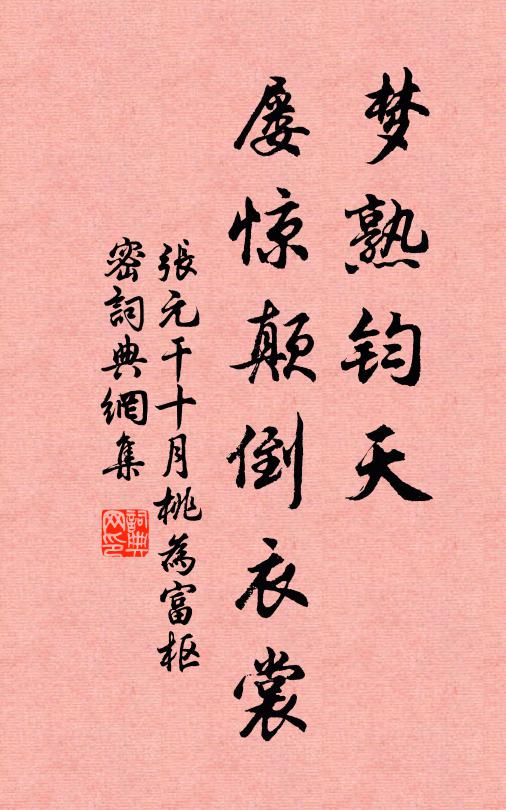 梦熟钧天
屡惊颠倒衣裳
張元干十月桃為富枢
密詞典網集
詞典
网印